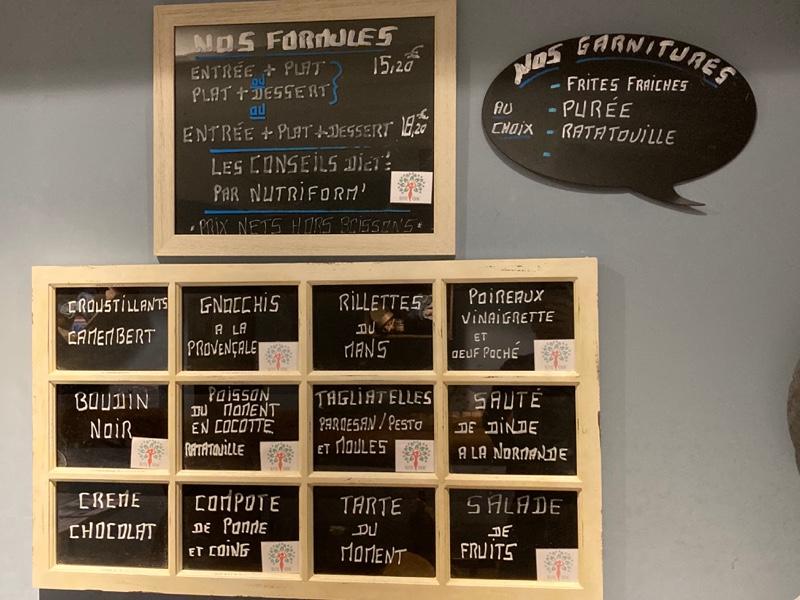 NOS FORMULES
ENTRÉE + PLAT 15,20€
ou
PLAT + DESSERT
ou
ENTRÉE + PLAT + DESSERT 18,20€
LES CONSEILS DIET!
PAR NUTRIFORM'
*PRIX NETS HORS BOISSONS*
NOS GARNITURES
AU CHOIX
- FRITES FRAICHES
- PURÉE
- RATATOUILLE
-
CROUSTILLANTS
CAMEMBERT
GNOCCHIS
A LA
PROVENÇALE
RILLETTES
DU
MANS
POIREAUX
VINAIGRETTE
ET
OEUF POCHÉ
BOUDIN
NOIR
POISSON
DU MOMENT
EN COCOTTE
RATATOUILLE
TAGLIATELLES
PARMESAN / PESTO
ET MOULES
SAUTÉ
DE DINDE
A LA NORMANDE
CREME
CHOCOLAT
COMPOTE
DE POMME
ET COING
TARTE
DU
MOMENT
SALADE
DE
FRUITS